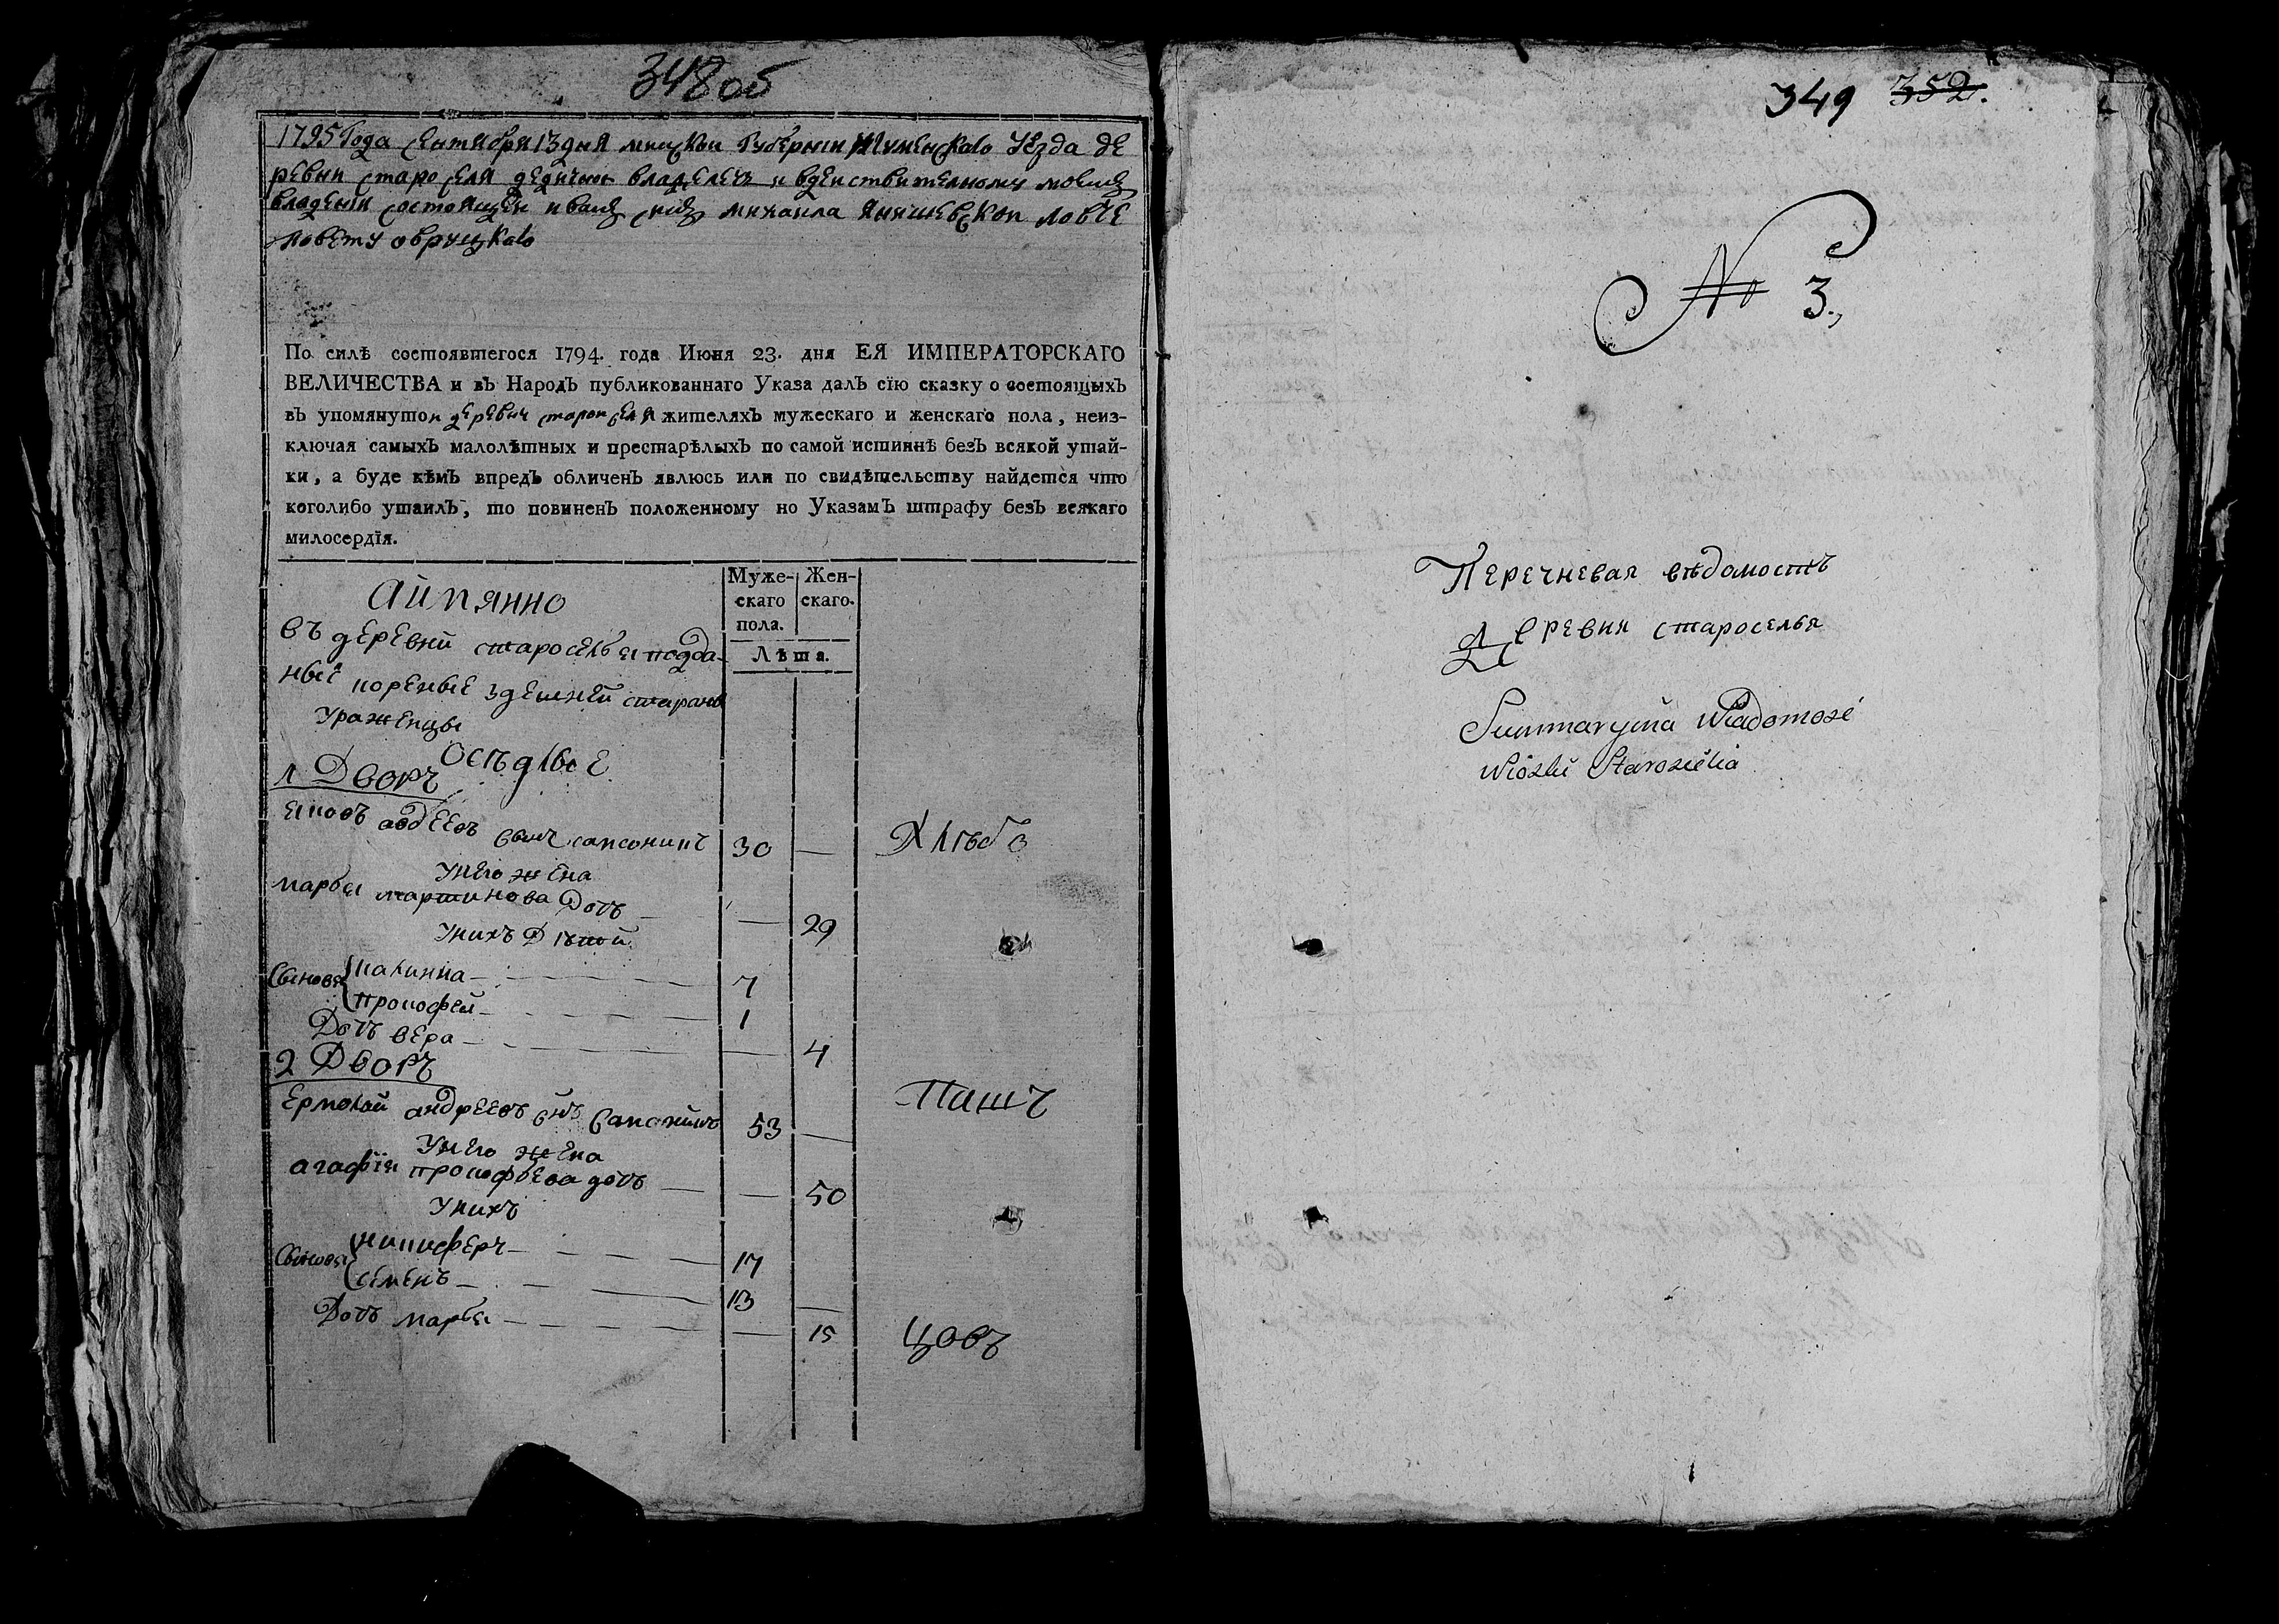 348об
1795 Года сентября 13 дня минскои Губернии Игуменскаго Уезда де
ревни старо селя дедичны владелечь и вдеиствителному моемъ
владении состоящеи иванъ снъ михаила янишевскои ловче
повету овруцкаго
По силѣ состоявшегося 1794. года Июня 23. дня ЕЯ ИМПЕРАТОРСКАГО
ВЕЛИЧЕСТВА и въ Народъ публикованнаго Указа далъ сїю сказку о состоящыхъ
въ упомянутои деревни старои селя жителяхъ мужескаго и женскаго пола, неиз-
ключая самыхъ малолѣтных и престарѣлыхъ по самой истиннѣ безъ всякой утай-
ки, а буде кѣмъ впредь обличенъ явлюсь или по свидѣтельству найдется что
коголибо утаилъ, то повиненъ положенному по Указамъ штрафу безъ всякаго
милосердїя.
Муже-скаго пола. Жен-скаго.
Лѣта.
Въ деревни староселья подда-
ные кореные здешней стараны
Ураженцы
Осѣдлые
1 Дворъ
яковъ авдеевъ сынъ сапонинъ 30 — Хлѣбо
У него жена
марья мартинова дочь — 29
У нихъ Дѣтей
Сыновья
прокофей 1
Дочь вера — 4
2 Дворъ
Ермолай андреевъ снъ сапонинъ 53 — Пашъ
У него жена
агафїя прокофьева дочь — 50
У нихъ
Сыновья никиферъ 17
семенъ 13 —
Дочь марья — 15
цовъ
349 352.
№ 3.,
Перечневая вѣдомость
деревня староселья
Summaryina Wiadomosć
Wioski Starosielia